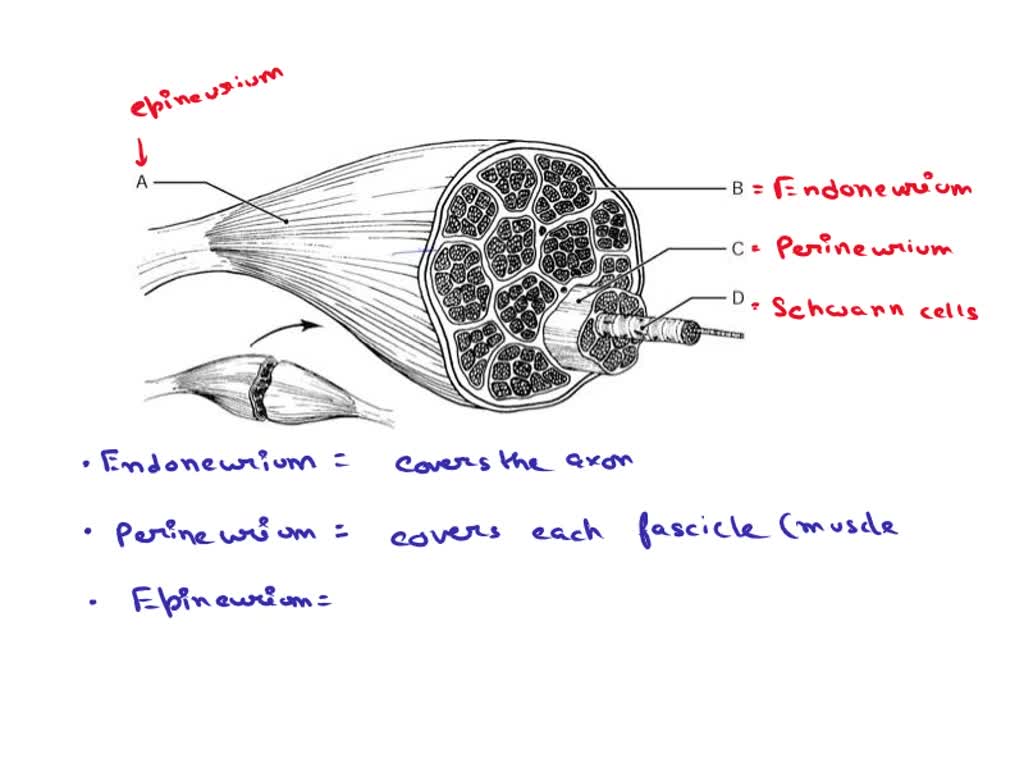 epineurium
↓
A
B = Endoneurium
C = Perineurium
D = Schwann cells
• Endoneurium = covers the axon
• Perineurium = covers each fascicle (muscle
• Epineurium =